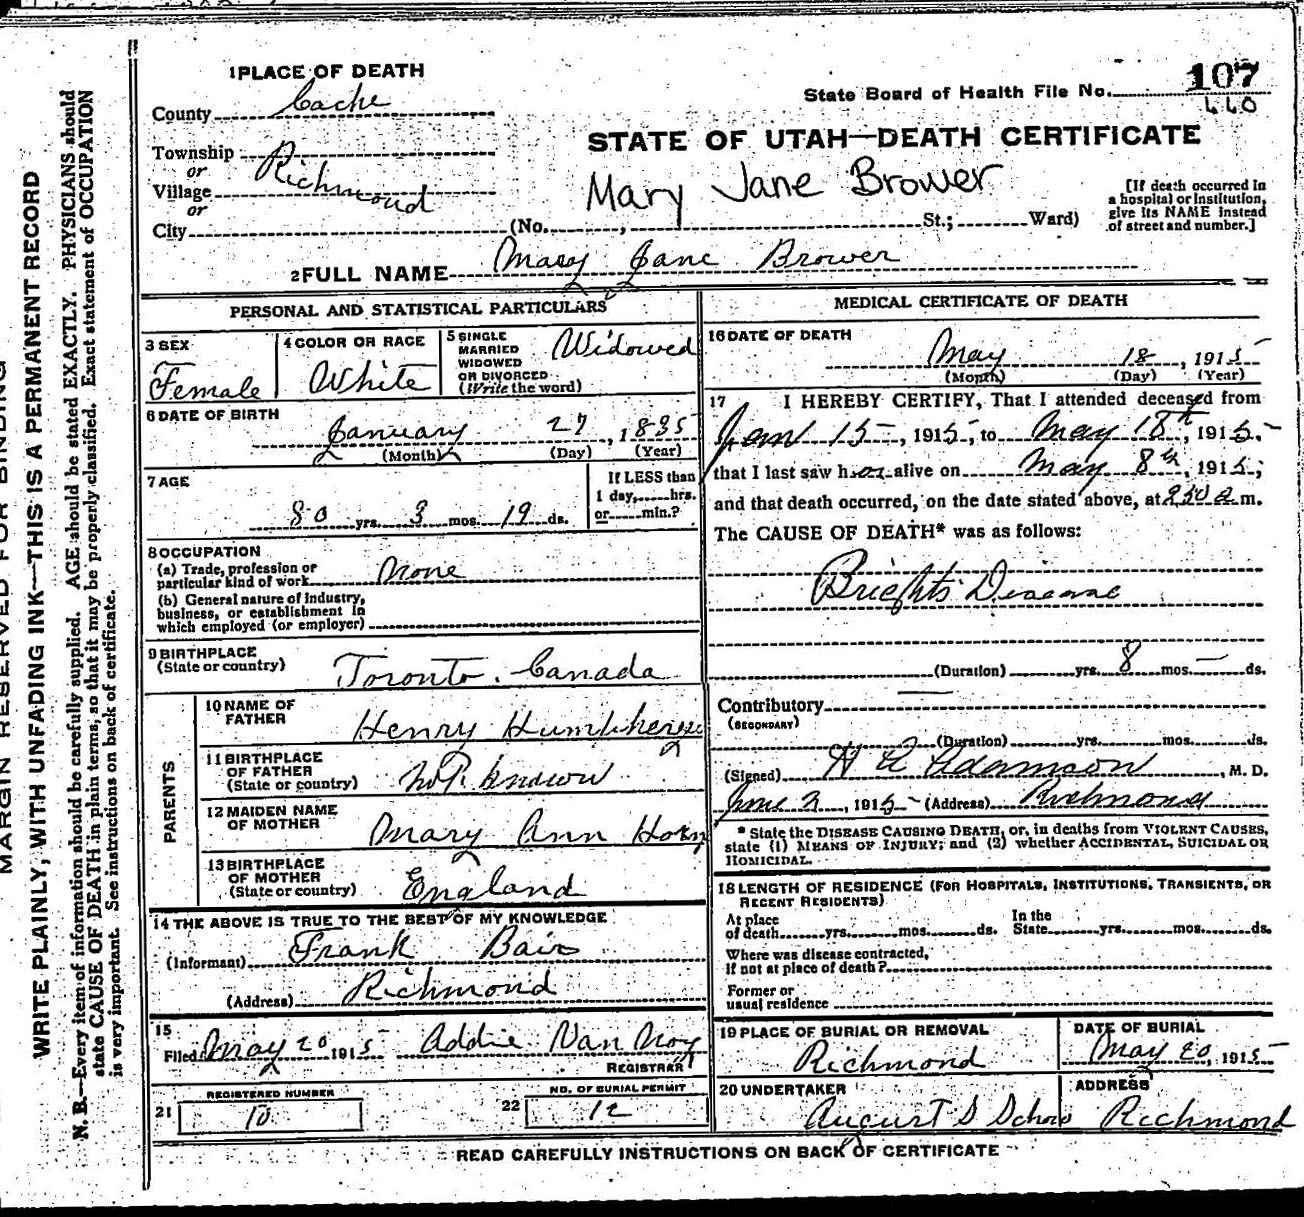 MARGIN RESERVED FOR BINDING
WRITE PLAINLY, WITH UNFADING INK—THIS IS A PERMANENT RECORD
N. B.—Every item of information should be carefully supplied. AGE should be stated EXACTLY. PHYSICIANS should
state CAUSE OF DEATH in plain terms, so that it may be properly classified. Exact statement of OCCUPATION
is very important. See instructions on back of certificate.
1 PLACE OF DEATH
County Cache
Township
or
Village Richmond
or
City
State Board of Health File No. 107
660
STATE OF UTAH—DEATH CERTIFICATE
Mary Jane Brower
(No. , St.; Ward)
[If death occurred in
a hospital or institution,
give its NAME instead
of street and number.]
2 FULL NAME Mary Jane Brower
PERSONAL AND STATISTICAL PARTICULARS
3 SEX
Female
4 COLOR OR RACE
White
5 SINGLE
MARRIED
WIDOWED
OR DIVORCED
(Write the word)
Widowed
6 DATE OF BIRTH
January 27, 1835
(Month) (Day) (Year)
7 AGE
80 yrs. 3 mos. 19 ds.
If LESS than
1 day, hrs.
or min.?
8 OCCUPATION
(a) Trade, profession or
particular kind of work None
(b) General nature of industry,
business, or establishment in
which employed (or employer)
9 BIRTHPLACE
(State or country) Toronto. Canada
PARENTS
10 NAME OF
FATHER Henry
11 BIRTHPLACE
OF FATHER
(State or country) not known
12 MAIDEN NAME
OF MOTHER Mary Ann Horn
13 BIRTHPLACE
OF MOTHER
(State or country) England
14 THE ABOVE IS TRUE TO THE BEST OF MY KNOWLEDGE
(Informant) Frank Bair
(Address) Richmond
15
Filed May 20 1915 Addie Van Noy
REGISTRAR
21 REGISTERED NUMBER
10
22 NO. OF BURIAL PERMIT
12
MEDICAL CERTIFICATE OF DEATH
16 DATE OF DEATH
May 18, 1915
(Month) (Day) (Year)
17 I HEREBY CERTIFY, That I attended deceased from
Jan 15, 1915, to May 18th, 1915.
that I last saw her alive on May 8th, 1915,
and that death occurred, on the date stated above, at 230 a m.
The CAUSE OF DEATH* was as follows:
Brights Disease
(Duration) yrs. 8 mos. — ds.
Contributory
(SECONDARY)
(Duration) yrs. mos. ds.
(Signed) H A Adamson, M. D.
June 2, 1915 (Address) Richmond
* State the DISEASE CAUSING DEATH, or, in deaths from VIOLENT CAUSES,
state (1) MEANS OF INJURY; and (2) whether ACCIDENTAL, SUICIDAL OR
HOMICIDAL.
18 LENGTH OF RESIDENCE (FOR HOSPITALS, INSTITUTIONS, TRANSIENTS, OR
RECENT RESIDENTS)
At place
of death yrs. mos. ds.
In the
State yrs. mos. ds.
Where was disease contracted,
if not at place of death?
Former or
usual residence
19 PLACE OF BURIAL OR REMOVAL
Richmond
DATE OF BURIAL
May 20, 1915
20 UNDERTAKER
August S Schow
ADDRESS
Richmond
READ CAREFULLY INSTRUCTIONS ON BACK OF CERTIFICATE